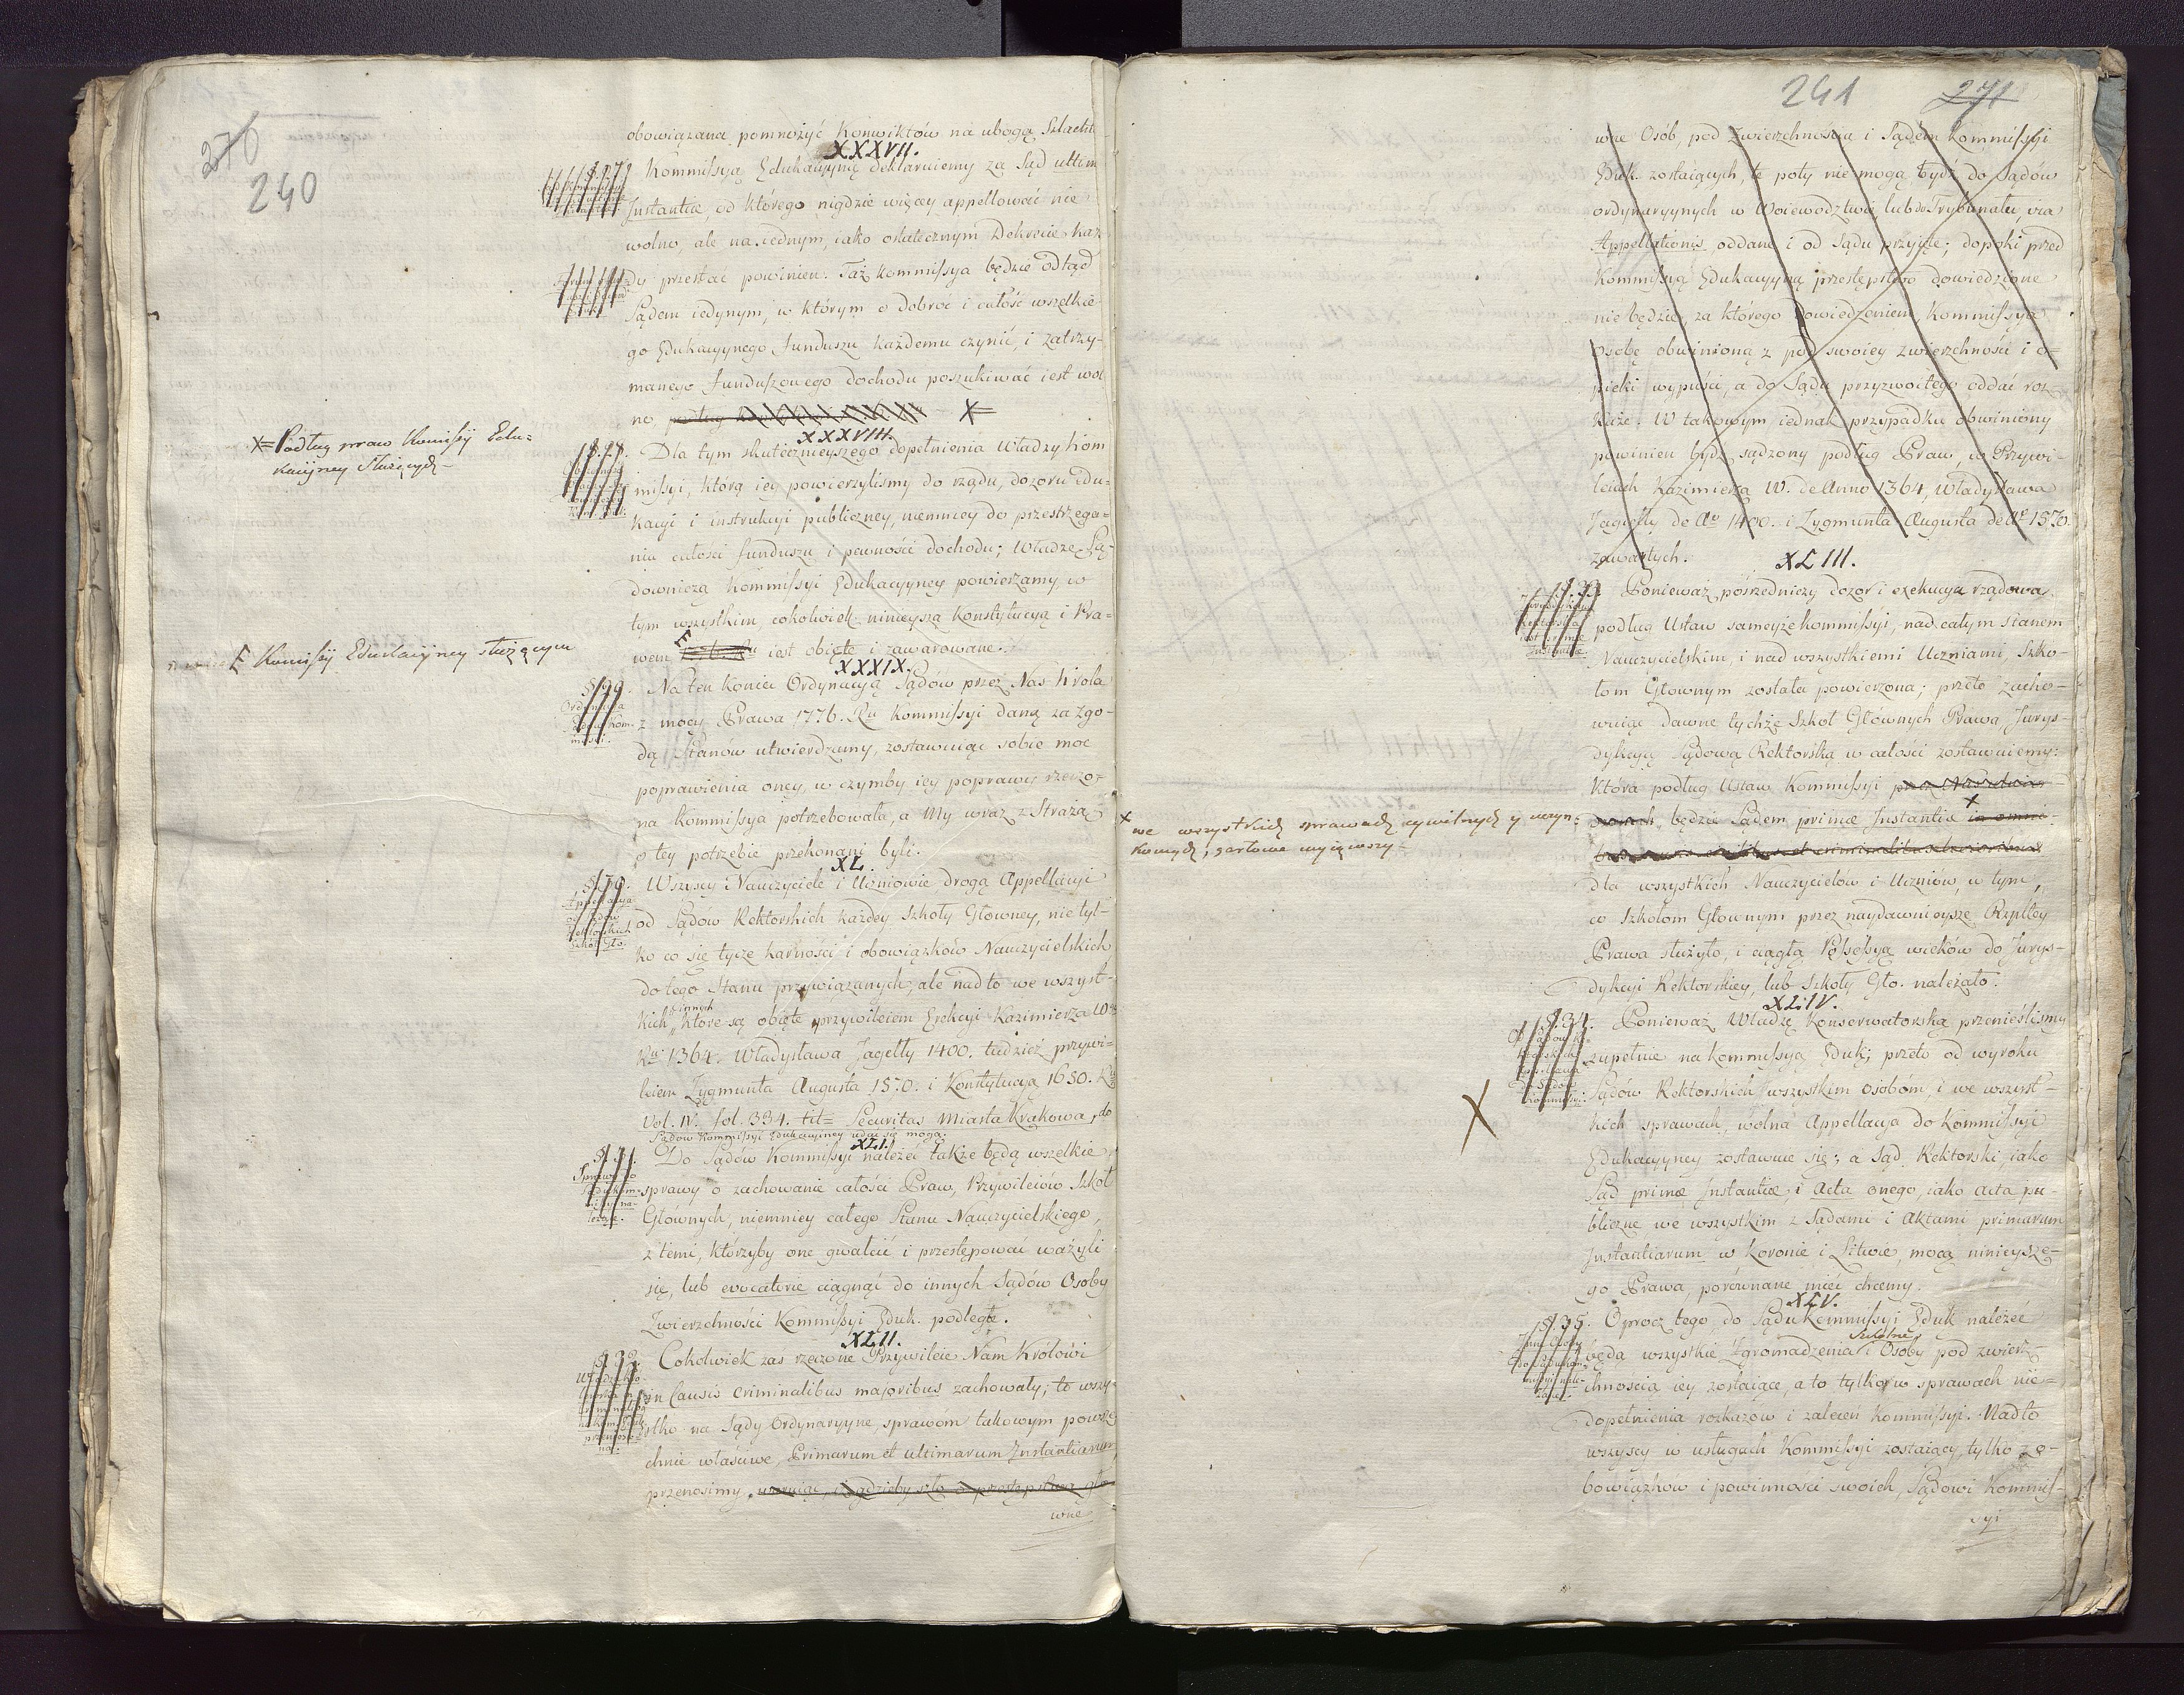 270
240
obowiązana pomnożyć Konwiktów na ubogą Szlacht
XXXVII.
§. 27. Kommissyą Edukacyyną deklaruiemy za Sąd ultimæ
Instantiæ, od którego nigdzie więcey appellować nie
wolno, ale na iednym, iako ostatecznym Dekrecie każ-
dy przestać powinien. Taż kommissya będzie odtąd
Sądem iedynym, w którym o dobroć i całość wszelkie-
go Edukacyynego funduszu każdemu czynić, i zatrzy-
manego funduszowego dochodu poszukiwać iest wol
no, podług
X= Podług praw Komissij Edu=
kacijney Służących
XXXVIII.
§. 28. Dla tym skutecznieyszego dopełnienia Władzy Kom
missyi, którą iey powierzyliśmy do rządu, dozoru edu-
kacyi i instrukcyi publiczney, niemniey do przestrzega=
nia całości funduszu i pewności dochodu; Władzę Są-
downiczą Kommissyi Edukacyyney powierzamy w
tym wszystkim, cokolwiek ninieyszą Konstytucyą i Pra=
wem iest obięte i zawarowane.
E Komissij Edukacijney służącym
XXXIX.
§. 29. Na ten koniec Ordynacyą Sądów przez Nas Króla
Ordynacya
z mocy Prawa 1776. Ru Kommissyi daną za zgo-
dą Stanów utwierdzamy, zostawuiąc sobie moc
poprawienia oney, w czymby iey poprawy rzeczo=
na Kommissya potrzebowała, a My wraz z Strażą
o tey potrzebie przekonani byli.
XL.
§. 30. Wszyscy Nauczyciele i Uczniowie drogą Appellacyi
Appellacya
od Sądów
Rektorskich
Szkół Głó:
od Sądow Rektorskich każdey Szkoły Głowney, nie tyl-
ko co się tycze karności i obowiązków Nauczycielskich
do tego Stanu przywiązanych, ale nadto we wszyst-
kich innych które są obięte przywileiem Erekcyi Kazimierza Wo
Ru 1364. Władysława Jagełły 1400. tudzież przywi-
leiem Zygmunta Augusta 1570. i Konstytucyą 1650. Ru
Vol. IV. fol. 334. tit= Securitas Miasta Krakowa, do
Sądow Kommissyi Edukacyyney udać się mogą.
XLI.
§. 31. Do Sądów Kommissyi należeć także będą wszelkie
sprawy o zachowanie całości Praw, Przywileiów Szkół
Głównych, niemniey całego Stanu Nauczycielskiego,
z temi, którzyby one gwałcić i przestępować ważyli
się, lub evocatorie ciągnąć do innych Sądów Osoby
Zwierzchności Kommissyi Eduk. podległe.
XLII.
§. 32. Cokolwiek zaś rzeczone Przywileie Nam Królowi
in Causis criminalibus majoribus zachowały; to wszy-
stko na Sądy Ordynaryyne sprawom takowym powsze
chnie właściwe, Primarum et ultimarum Instantiarum,
przenosimy. waruiąc, iż gdzieby szło o przestępstwa głó
wne
241
271
wne Osób, pod Zwierzchnością i Sądem Kommissyi
Eduk. zostaiących, te poty nie mogą bydź do Sądów
ordynaryynych w Woiewodztwie, lub do Trybunału, via
Appellationis, oddane i od Sądu przyięte; dopoki przed
Kommissyą Edukacyyną przestępstwo dowiedzione
nie będzie, za którego dowiedzeniem, Kommissya
osobę obwinioną z pod swoiey zwierzchności i o=
pieki wypuści, a do Sądu przyzwoitego oddać roz-
każe. W takowym iednak przypadku obwiniony
powinien bydź sądzony podług Praw, w Przywi-
leiach Kazimierza W. de Anno 1364, Władysława
Jagiełły de Ao 1400. i Zygmunta Augusta de Ao 1570.
zawartych.
XLIII.
§. 33. Ponieważ pośredniczy dozor i exekucya rządowa
podług Ustaw sameyże kommissyi, nad całym Stanem
Nauczycielskim, i nad wszystkiemi Uczniami, Szko-
łom Głownym została powierzona; przeto zacho-
wuiąc dawne tychże Szkół Głównych Prawa, Jurys-
dykcyą Sądową Rektorską w całości zostawuiemy:
Która podług Ustaw Kommissyi
będzie Sądem primæ Instantiæ in omni-
bus causis civilibus et criminalibus
X we wszystkich sprawach cywilnych y uczyn=
kowych, garłowe wyiąwszy
dla wszystkich Nauczycielów i Uczniów, w tym,
co Szkołom Głownym przez naydawnieysze Rzpltey
Prawa służyło, i ciągłą Possessyą wieków do Jurys-
dykcyi Rektorskiey, lub Szkoły Gło. należało.
XLIV.
§. 34. Ponieważ Władzę Konserwatorską przenieśliśmy
zupełnie na kommissyą Eduk; przeto od wyroku
Sądów Rektorskich wszystkim osobóm, i we wszyst-
kich sprawach, wolna Appellacya do Kommissyi
Edukacyyney zostawuie się; a Sąd Rektorski, iako
Sąd primæ Instantiæ, i Acta onego, iako acta pu-
bliczne we wszystkim z Sądami i Aktami primarum
Instantiarum w Koronie i Litwie, mocą ninieysze-
go Prawa porównane mieć chcemy.
X
XLV.
§. 35. Oprocz tego, do Sądu Kommissyi Eduk należeć
będą wszystkie Zgromadzenia Szkolne i Osoby pod zwierz-
chnością iey zostaiące, a to tylko w sprawach nie=
dopełnienia rozkazow i zaleceń Kommissyi. Nadto
wszyscy w usługach Kommissyi zostaiący, tylko z o-
bowiązków i powinności swoich, Sądowi Kommis-
syi